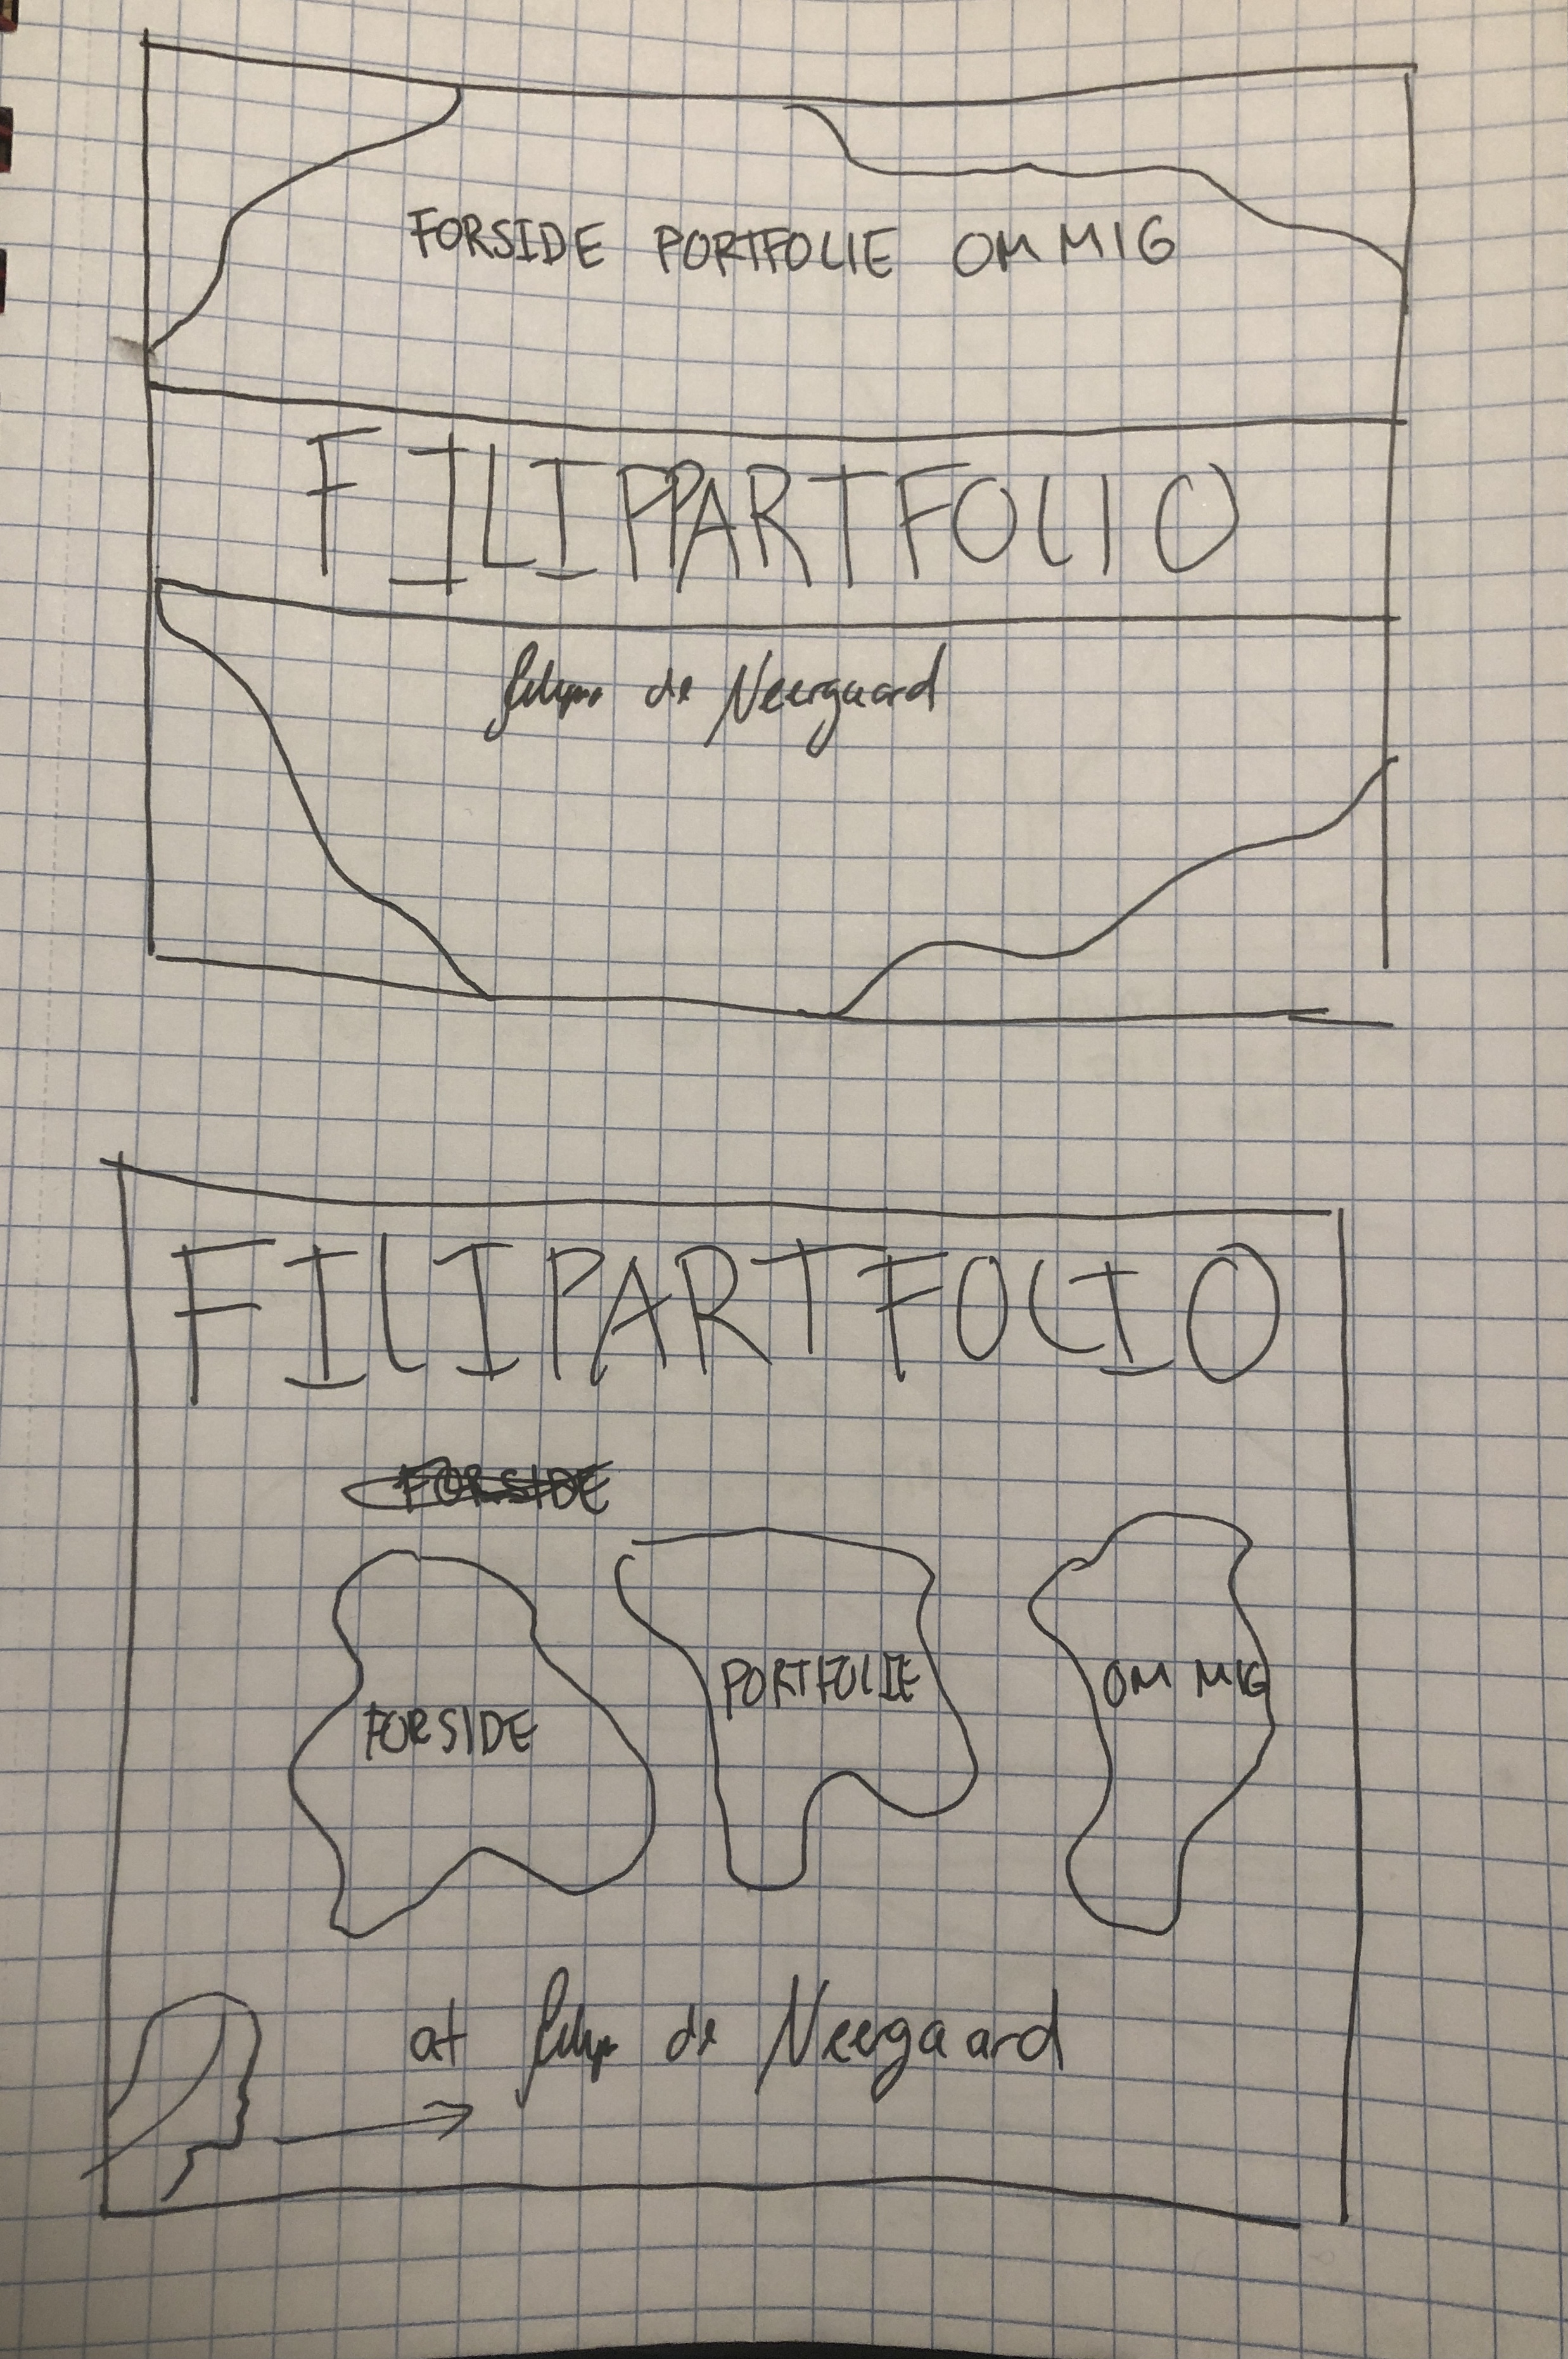 FORSIDE PORTFOLIE OM MIG
FILIPPARTFOLIO
filip de Neergaard
FILIPARTFOLIO
FORSIDE
FORSIDE
PORTFOLIE
OM MIG
at filip de Neergaard